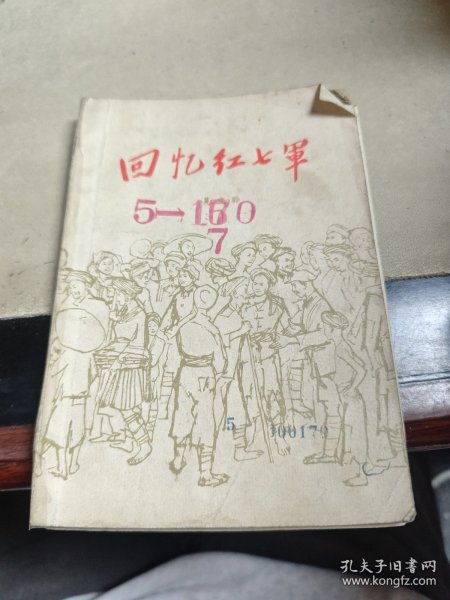 回忆红七軍
5→160
7
5 00179
孔夫子旧书网
www.kongfz.com